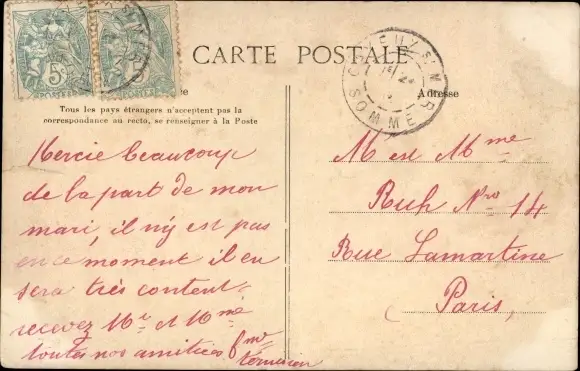 CARTE POSTALE
Tous les pays étrangers n'acceptent pas la
correspondance au recto, se renseigner à la Poste
Adresse
SOMME
5c
Mercie beaucoup
de la part de mon
mari, il n'y est pas
en ce moment il en
sera très content,
recevez Mr et Mme
toutes nos amitiées
M est Mme
Ruh Nro 14
Rue Lamartine
Paris,